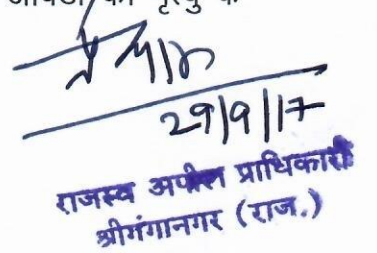 की मृत्यु के
29/9/17
राजस्व अपील प्राधिकारी
श्रीगंगानगर (राज.)